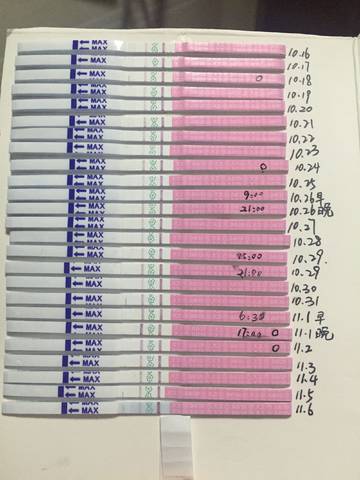 ← MAX 10.16
← MAX 10.17
← MAX 0 10.18
← MAX 10.19
← MAX 10.20
← MAX 10.21
← MAX 10.22
← MAX 10.23
← MAX 0 10.24
← MAX 10.25
← MAX 9:00 10.26早
← MAX 21:00 10.26晚
← MAX 10.27
← MAX 10.28
← MAX 10.29.
← MAX 21:00 10.29
← MAX 10.30
← MAX 10.31
← MAX 6:30 11.1早
← MAX 17:00 0 11.1晚
← MAX 0 11.2
← MAX 11.3
← MAX 11.4
← MAX 11.5
← MAX 11.6